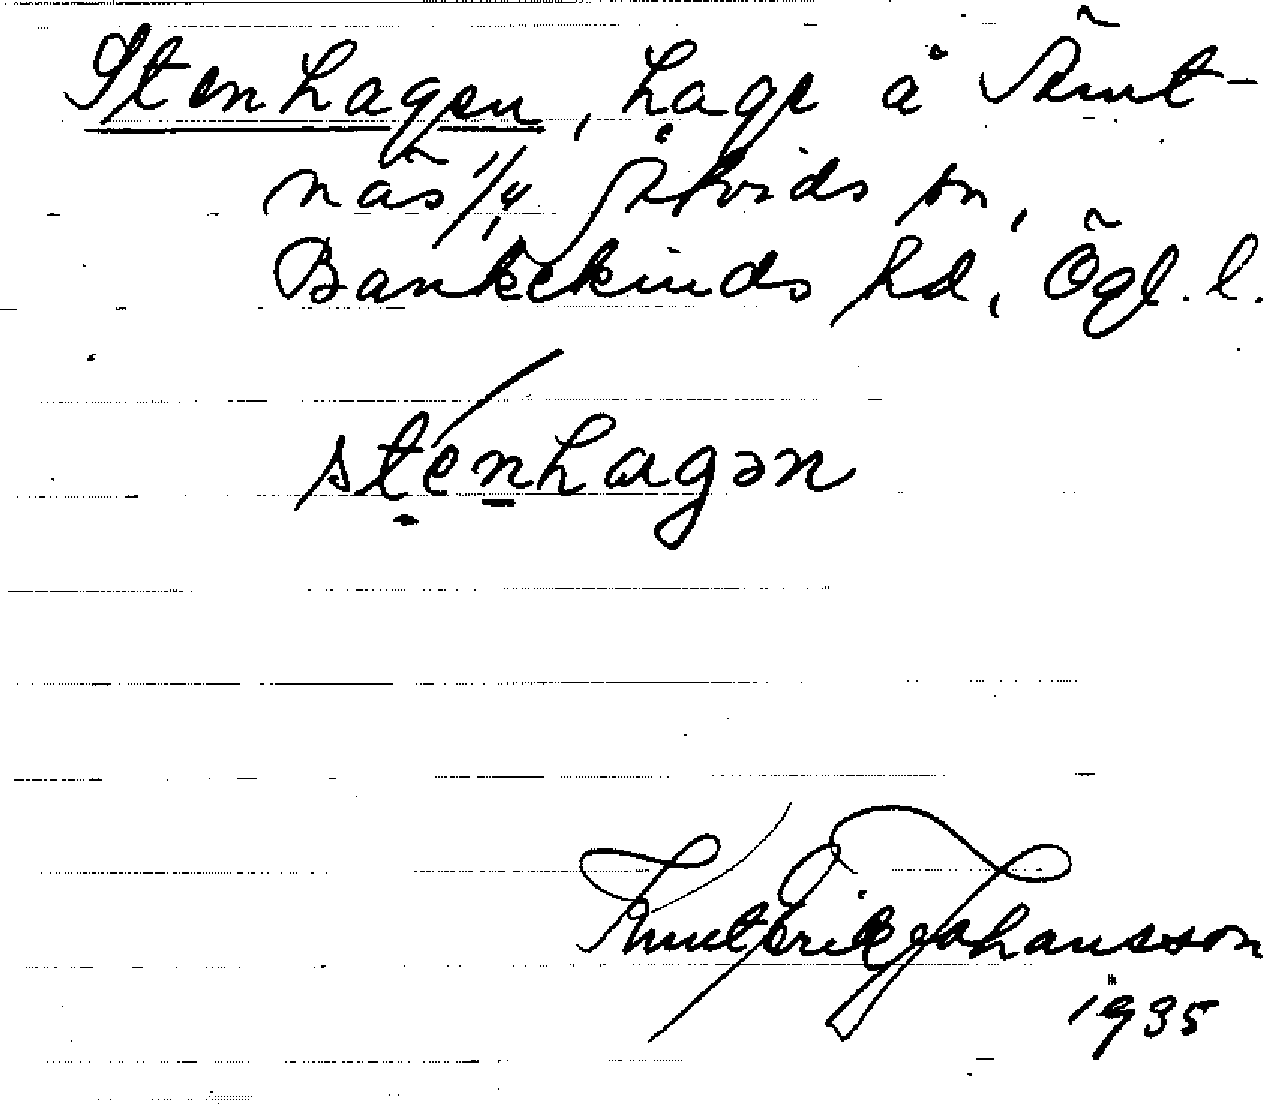 Stenhagen, hage å Ämt-
näs 1/4 Åtvids sn,
Bankekinds hd, Ögl. l.
sténhagən
Knut Erik Johansson
1935